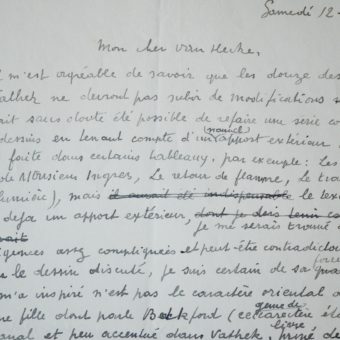 Samedi 12-
Mon cher van Hecke,
l m'est agréable de savoir que les douze des
athek ne devront pas subir de modifications
ait sans doute été possible de refaire une série
dessins en tenant compte d'un apport extérieur,
nouvel
faite dans certains tableaux, par exemple: les
de Monsieur Ingres, Le retour de flamme, Le tra
lumière), mais il aurait été indispensable le tex
deja un apport extérieur, dont je dois tenir
je me serais trouvé
gences assez compliquées et peut-être contradictoi
le dessin discuté, je suis certain de sa
force
m'a inspiré n'est pas le caractère oriental
une fille dont parle Beckford (ce caractère
genre de
et peu accentué dans Vathek,
livre